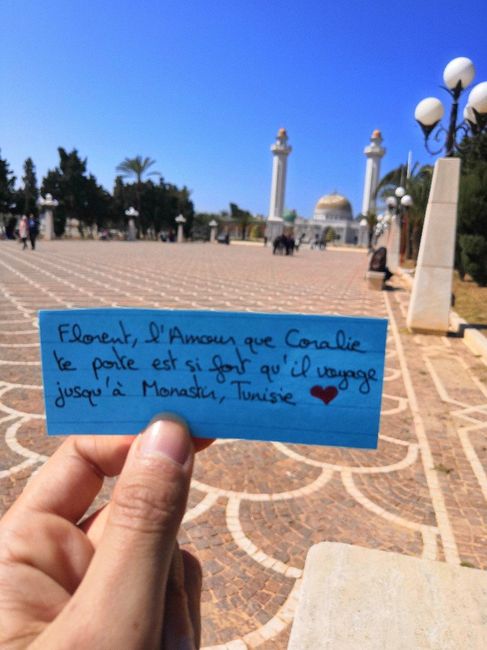 Florent, l'Amour que Coralie
te porte est si fort qu'il voyage
jusqu'à Monastir, Tunisie ♥